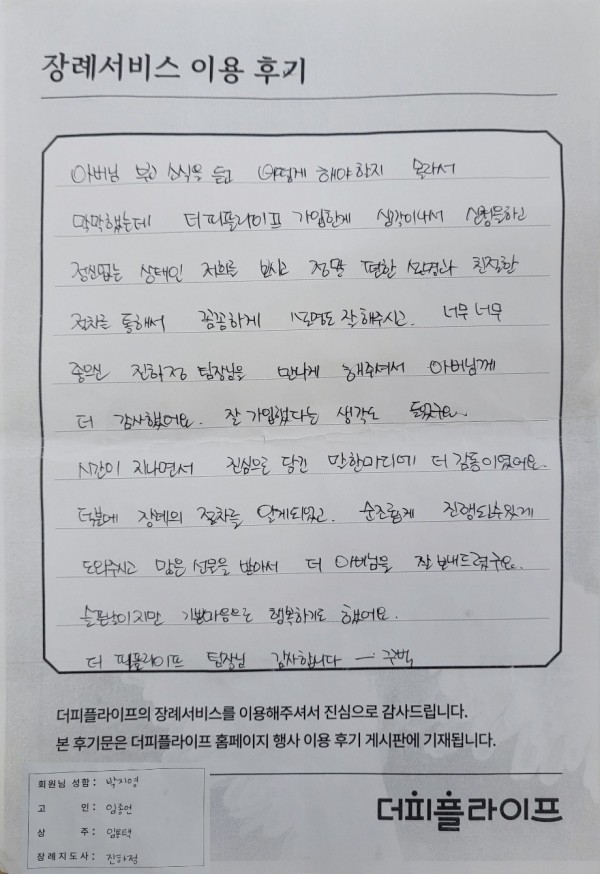 장례서비스 이용 후기
아버님 부고 소식을 듣고 어떻게 해야할지 몰라서
막막했는데 더피플라이프 가입한게 생각이나서 신청을하고
정신없는 상태인 저희를 보시고 정말 편한 환경과 친절한
절차를 통해서 꼼꼼하게 설명도 잘해주시고. 너무 너무
좋으신 진하정 팀장님을 만나게 해주셔서 아버님께
더 감사했어요. 잘 가입했다는 생각도 들었구요.
시간이 지나면서 진심으로 담긴 말한마디에 더 감동이였어요.
덕분에 장례의 절차를 알게되었고. 순조롭게 진행될수있게
도와주시고 많은 선물을 받아서 더 아버님을 잘 보내드렸구요.
슬픈날이지만 기쁜마음으로 행복하기도 했어요.
더 피플라이프 팀장님 감사합니다 — 꾸벅
더피플라이프의 장례서비스를 이용해주셔서 진심으로 감사드립니다.
본 후기문은 더피플라이프 홈페이지 행사 이용 후기 게시판에 기재됩니다.
회원님 성함 : 박지영
고 인 : 임종언
상 주 :
장례지도사 : 진하정
더피플라이프